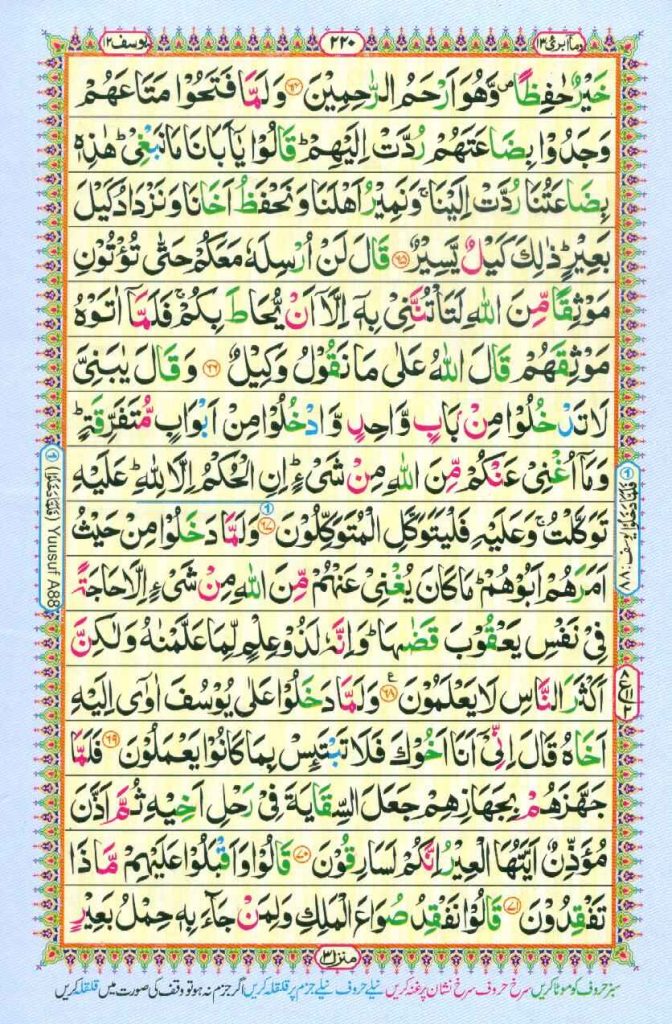 وما آبرئ ١٣
٢٢٠
يوسف ١٢
خَيْرٌ حٰفِظًا ۪ وَّهُوَ اَرْحَمُ الرّٰحِمِيْنَ ﴿۶۴﴾ وَلَمَّا فَتَحُوْا مَتَاعَهُمْ
وَجَدُوْا بِضَاعَتَهُمْ رُدَّتْ اِلَيْهِمْ ؕ قَالُوْا يٰۤاَبَانَا مَا نَبْغِىْ ؕ هٰذِهٖ
بِضَاعَتُنَا رُدَّتْ اِلَيْنَا ۚ وَنَمِيْرُ اَهْلَنَا وَنَحْفَظُ اَخَانَا وَنَزْدَادُ كَيْلَ
بَعِيْرٍ ؕ ذٰلِكَ كَيْلٌ يَّسِيْرٌ ﴿۶۵﴾ قَالَ لَنْ اُرْسِلَهٗ مَعَكُمْ حَتّٰى تُؤْتُوْنِ
مَوْثِقًا مِّنَ اللّٰهِ لَتَاْتُنَّنِىْ بِهٖۤ اِلَّاۤ اَنْ يُّحَاطَ بِكُمْ ۚ فَلَمَّاۤ اٰتَوْهُ
مَوْثِقَهُمْ قَالَ اللّٰهُ عَلٰى مَا نَقُوْلُ وَكِيْلٌ ﴿۶۶﴾ وَقَالَ يٰبَنِىَّ
لَا تَدْخُلُوْا مِنْۢ بَابٍ وَّاحِدٍ وَّادْخُلُوْا مِنْ اَبْوَابٍ مُّتَفَرِّقَةٍ ؕ
وَمَاۤ اُغْنِىْ عَنْكُمْ مِّنَ اللّٰهِ مِنْ شَىْءٍ ؕ اِنِ الْحُكْمُ اِلَّا لِلّٰهِ ؕ عَلَيْهِ
تَوَكَّلْتُ ۚ وَعَلَيْهِ فَلْيَتَوَكَّلِ الْمُتَوَكِّلُوْنَ ﴿۶۷﴾ وَلَمَّا دَخَلُوْا مِنْ حَيْثُ
اَمَرَهُمْ اَبُوْهُمْ ؕ مَا كَانَ يُغْنِىْ عَنْهُمْ مِّنَ اللّٰهِ مِنْ شَىْءٍ اِلَّا حَاجَةً
فِىْ نَفْسِ يَعْقُوْبَ قَضٰٮهَا ؕ وَاِنَّهٗ لَذُوْ عِلْمٍ لِّمَا عَلَّمْنٰهُ وَلٰكِنَّ
اَكْثَرَ النَّاسِ لَا يَعْلَمُوْنَ ﴿۶۸﴾ وَلَمَّا دَخَلُوْا عَلٰى يُوْسُفَ اٰوٰٓى اِلَيْهِ
اَخَاهُ قَالَ اِنِّىْۤ اَنَا اَخُوْكَ فَلَا تَبْتَئِسْ بِمَا كَانُوْا يَعْمَلُوْنَ ﴿۶۹﴾ فَلَمَّا
جَهَّزَهُمْ بِجَهَازِهِمْ جَعَلَ السِّقَايَةَ فِىْ رَحْلِ اَخِيْهِ ثُمَّ اَذَّنَ
مُؤَذِّنٌ اَيَّتُهَا الْعِيْرُ اِنَّكُمْ لَسَارِقُوْنَ ﴿۷۰﴾ قَالُوْا وَاَقْبَلُوْا عَلَيْهِمْ مَّاذَا
تَفْقِدُوْنَ ﴿۷۱﴾ قَالُوْا نَفْقِدُ صُوَاعَ الْمَلِكِ وَلِمَنْ جَآءَ بِهٖ حِمْلُ بَعِيْرٍ
Yuusuf A88
منزل ۳
سبز حروف کو موٹا کریں سرخ حروف سرخ نشان پر غنہ کریں نیلے حروف نیلے جزم پر قلقلہ کریں اگر جزم نہ ہو تو وقف کی صورت میں قلقلہ کریں